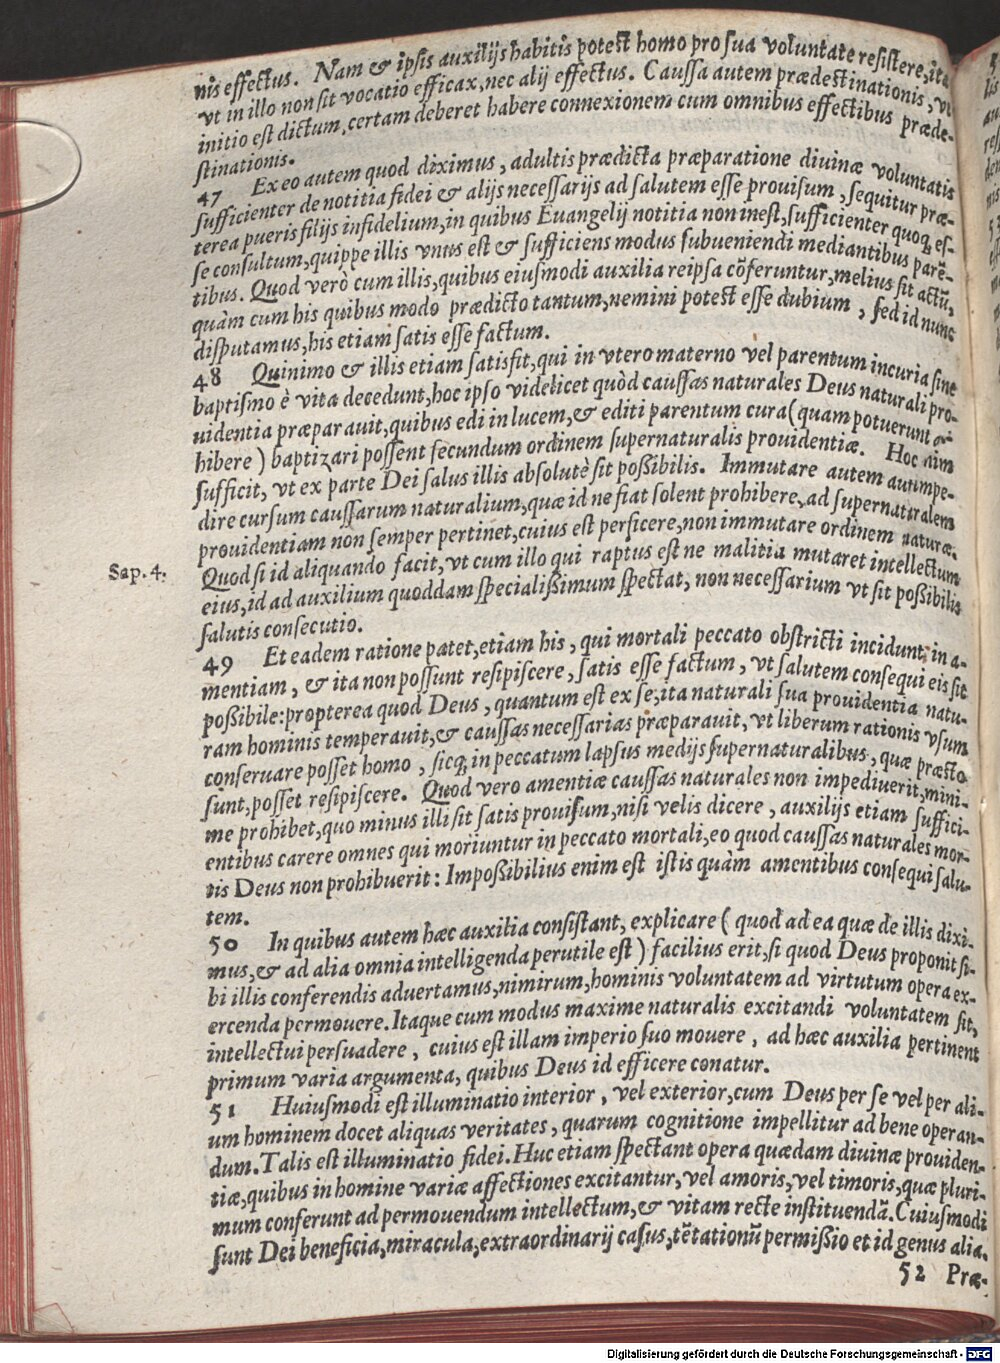 nis effectus. Nam & ipsis auxilijs habitis potest homo pro sua voluntate resistere, ita
vt in illo non sit vocatio efficax, nec alij effectus. Caussa autem prædestinationis, vt
initio est dictum, certam deberet habere connexionem cum omnibus effectibus præde-
stinationis.
47 Ex eo autem quod diximus, adultis prædicta præparatione diuinæ voluntatis
sufficienter de notitia fidei & alijs necessarijs ad salutem esse prouisum, sequitur præ-
terea pueris filijs infidelium, in quibus Euangelij notitia non inest, sufficienter quoq; es-
se consultum, quippe illis vnus est & sufficiens modus subueniendi mediantibus parē-
tibus. Quod verò cum illis, quibus eiusmodi auxilia reipsa cōferuntur, melius sit actū,
quàm cum his quibus modo prædicto tantum, nemini potest esse dubium, sed id nunc
disputamus, his etiam satis esse factum.
48 Quinimo & illis etiam satisfit, qui in vtero materno vel parentum incuria sine
baptismo è vita decedunt, hoc ipso videlicet quòd caussas naturales Deus naturali pro-
uidentia præparauit, quibus edi in lucem, & editi parentum cura (quam potuerunt ad-
hibere) baptizari possent secundum ordinem supernaturalis prouidentiæ. Hoc nim
sufficit, vt ex parte Dei salus illis absolutè sit poßibilis. Immutare autem aut impe-
dire cursum caussarum naturalium, quæ id ne fiat solent prohibere, ad supernaturalem
prouidentiam non semper pertinet, cuius est perficere, non immutare ordinem naturæ.
Quod si id aliquando facit, vt cum illo qui raptus est ne malitia mutaret intellectum
Sap. 4.
eius, id ad auxilium quoddam specialißimum spectat, non necessarium vt sit poßibilis
salutis consecutio.
49 Et eadem ratione patet, etiam his, qui mortali peccato obstricti incidunt in a-
mentiam, & ita non possunt resipiscere, satis esse factum, vt salutem consequi eis sit
poßibile: propterea quod Deus, quantum est ex se, ita naturali sua prouidentia natu-
ram hominis temperauit, & caussas necessarias præparauit, vt liberum rationis vsum
conseruare posset homo, sicq; in peccatum lapsus medijs supernaturalibus, quæ præsto
sunt, posset resipiscere. Quod vero amentiæ caussas naturales non impediuerit, mini-
me prohibet, quo minus illi sit satis prouisum, nisi velis dicere, auxilijs etiam suffici-
entibus carere omnes qui moriuntur in peccato mortali, eo quod caussas naturales mor-
tis Deus non prohibuerit: Impoßibilius enim est istis quàm amentibus consequi salu-
tem.
50 In quibus autem hæc auxilia consistant, explicare (quod ad ea quæ de illis dixi-
mus, & ad alia omnia intelligenda perutile est) facilius erit, si quod Deus proponit si-
bi illis conferendis aduertamus, nimirum, hominis voluntatem ad virtutum opera ex-
ercenda permouere. Itaque cum modus maxime naturalis excitandi voluntatem sit,
intellectui persuadere, cuius est illam imperio suo mouere, ad hæc auxilia pertinent
primum varia argumenta, quibus Deus id efficere conatur.
51 Huiusmodi est illuminatio interior, vel exterior, cum Deus per se vel per ali-
um hominem docet aliquas veritates, quarum cognitione impellitur ad bene operan-
dum. Talis est illuminatio fidei. Huc etiam spectant opera quædam diuinæ prouiden-
tiæ, quibus in homine variæ affectiones excitantur, vel amoris, vel timoris, quæ pluri-
mum conferunt ad permouendum intellectum, & vitam recte instituendā. Cuiusmodi
sunt Dei beneficia, miracula, extraordinarij casus, tētationū permißio et id genus alia.
52 Præ-
Digitalisierung gefördert durch die Deutsche Forschungsgemeinschaft - DFG